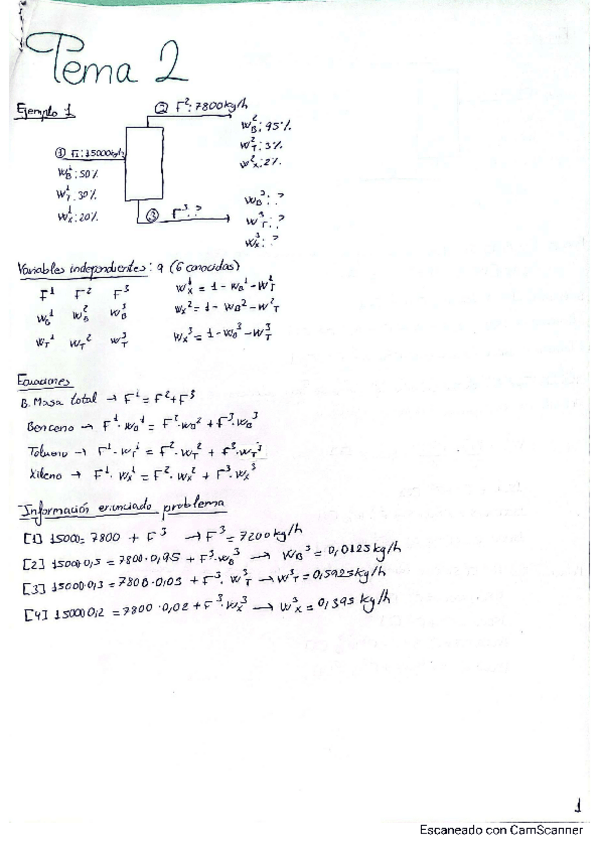 Tema 2
Ejemplo 1
② F²: 7800 kg/h
W_B²: 95%
W_T²: 3%
W_X²: 2%
① F¹: 15000 kg/h
W_B¹: 50%
W_T¹: 30%
W_X¹: 20%
③ F³: ?
W_B³: ?
W_T³: ?
W_X³: ?
Variables independientes: 9 (6 conocidas)
F¹ F² F³ W_X¹ = 1 - W_B¹ - W_T¹
W_B¹ W_B² W_B³ W_X² = 1 - W_B² - W_T²
W_T¹ W_T² W_T³ W_X³ = 1 - W_B³ - W_T³
Ecuaciones
B. Masa total → F¹ = F² + F³
Benceno → F¹·W_B¹ = F²·W_B² + F³·W_B³
Tolueno → F¹·W_T¹ = F²·W_T² + F³·W_T³
Xileno → F¹·W_X¹ = F²·W_X² + F³·W_X³
Información enunciado problema
[1] 15000 = 7800 + F³ → F³ = 7200 kg/h
[2] 15000·0,5 = 7800·0,95 + F³·W_B³ → W_B³ = 0,0125 kg/h
[3] 15000·0,3 = 7800·0,03 + F³·W_T³ → W_T³ = 0,5925 kg/h
[4] 15000·0,2 = 7800·0,02 + F³·W_X³ → W_X³ = 0,395 kg/h
1
Escaneado con CamScanner